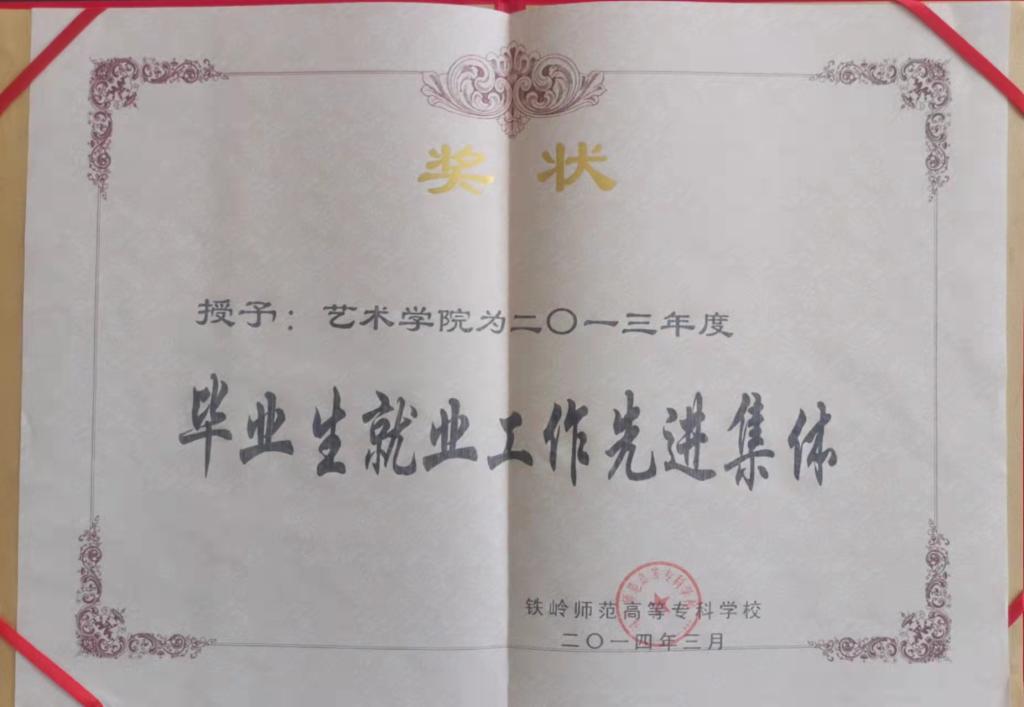 奖状
授予：艺术学院为二〇一三年度
毕业生就业工作先进集体
铁岭师范高等专科学校
二〇一四年三月